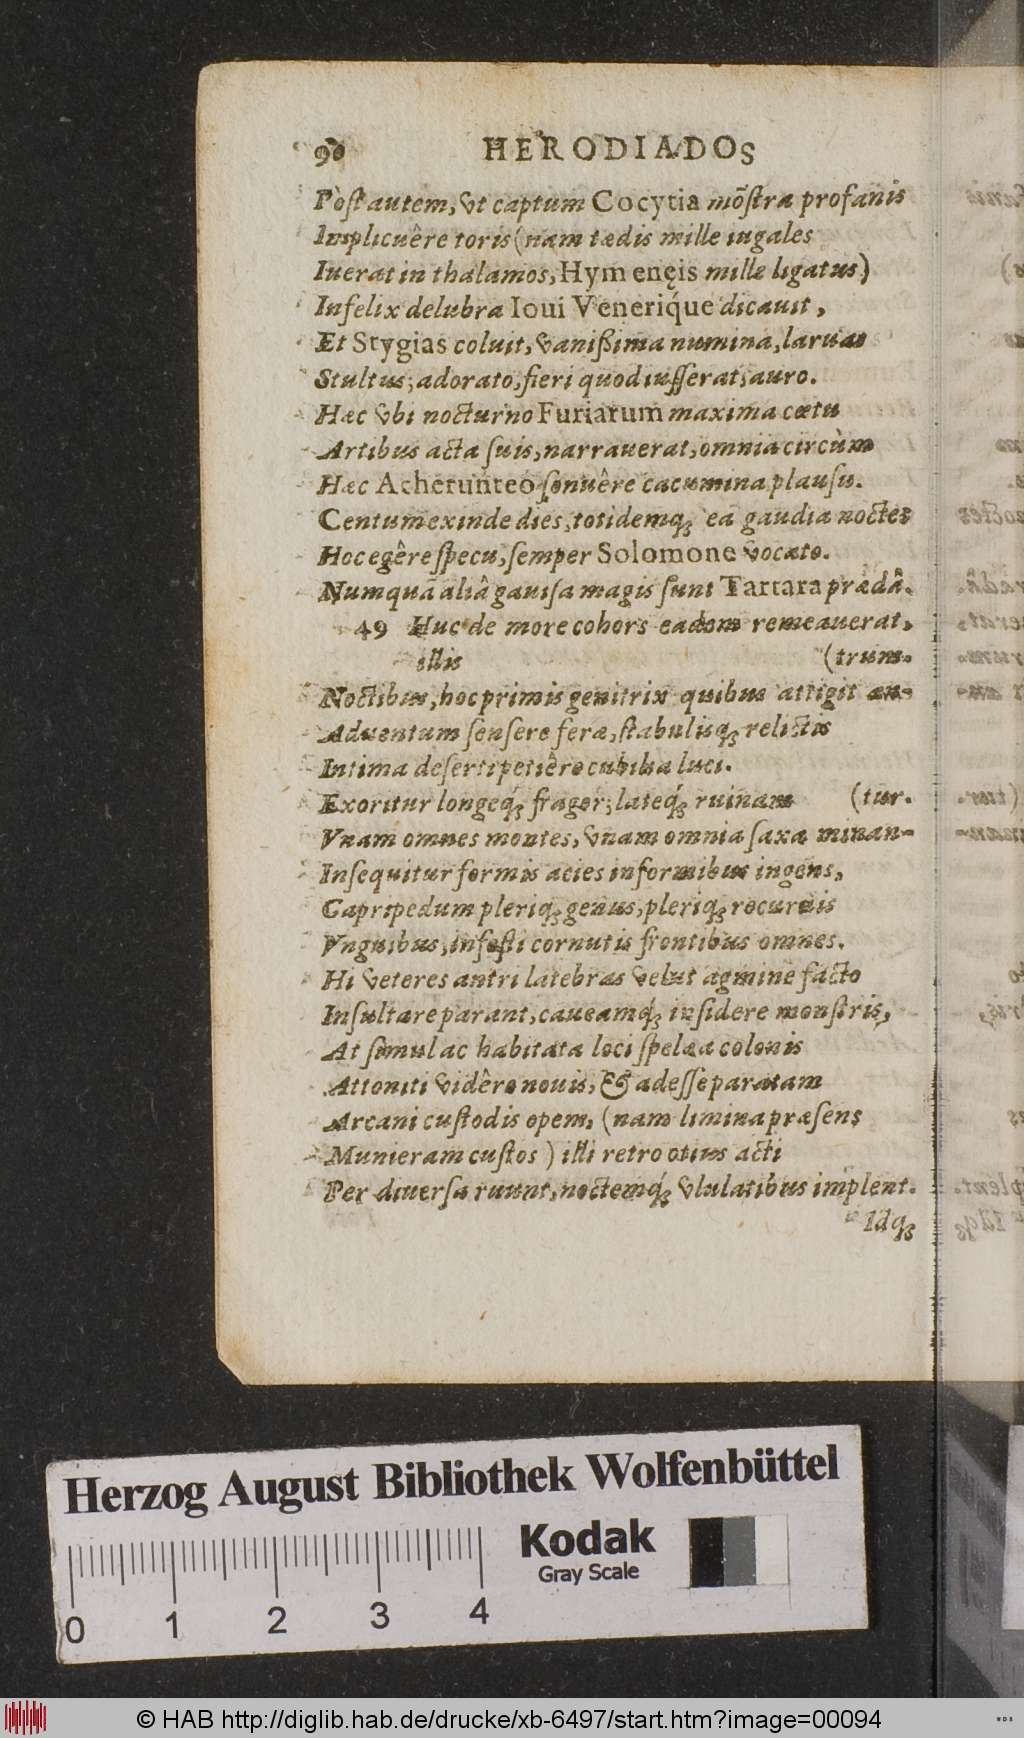 90 HERODIADOS
Pòst autem, vt captum Cocytia mõstra profanis
Implicuêre toris (nam tædis mille iugales
Iuerat in thalamos, Hymenęis mille ligatus)
Infelix delubra Ioui Veneriq́ue dicauit,
Et Stygias coluit, vanißima numina, laruas
Stultus; adorato, fieri quod iusserat, auro.
Hæc vbi nocturno Furiarum maxima cœtu
Artibus acta suis, narrauerat, omnia circùm
Hæc Acherunteo sonuêre cacumina plausu.
Centum exinde dies, totidemq; ea gaudia noctes
Hoc egêre specu, semper Solomone vocato.
Numquã aliâ gauisa magis sunt Tartara prædâ.
49 Huc de more cohors eadem remeauerat,
illis (trum.
Noctibus, hoc primis genitrix quibus attigit an-
Aduentum sensere feræ, stabulisq; relictis
Intima deserti petiêre cubilia luci.
Exoritur longeq́; fragor; lateq́; ruinam (tur.
Vnam omnes montes, vnam omnia saxa minan-
Insequitur formis acies informibus ingens,
Capripedum pleriq; genus, pleriq; recuruis
Vnguibus, infesti cornutis frontibus omnes.
Hi veteres antri latebras velut agmine facto
Insultare parant, caueamq́; insidere monstris,
At simul ac habitata loci spelæa colonis
Attoniti vidêre nouis, & adesse paratam
Arcani custodis opem, (nam limina præsens
Munieram custos) illi retro ocius acti
Per diuersa ruunt, noctemq́; vlulatibus implent.
Idq;
Herzog August Bibliothek Wolfenbüttel
Kodak
Gray Scale
0 1 2 3 4
© HAB http://diglib.hab.de/drucke/xb-6497/start.htm?image=00094